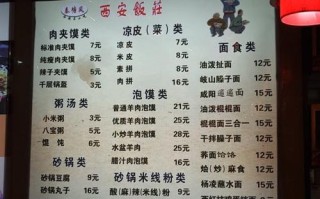 西安飯莊
肉夹馍类
标准肉夹馍 7元
纯瘦肉夹馍 8元
辣子夹馍 5元
千层锅盔 3元
粥汤类
小米粥 3元
八宝粥 5元
馄饨 6元
砂锅类
砂锅豆腐 9元
砂锅丸子 16元
凉皮(菜)类
凉皮 7元
米皮 7元
素拼 8元
肉拼 18元
泡馍类
普通羊肉泡馍 16元
优质羊肉泡馍 25元
小炒羊肉泡馍 18元
水盆羊肉 21元
腊汁肉泡馍 16元
砂锅米线粉类
酸(麻)辣(米线)粉 9元
面食类
油泼扯面 12元
岐山臊子面 12元
咸阳 面 12元
油泼棍棍面 12元
棍棍面三合一 15元
干拌臊子面 12元
荞面饸饹 12元
烩(炒)麻食 12元
杨凌蘸水面 15元